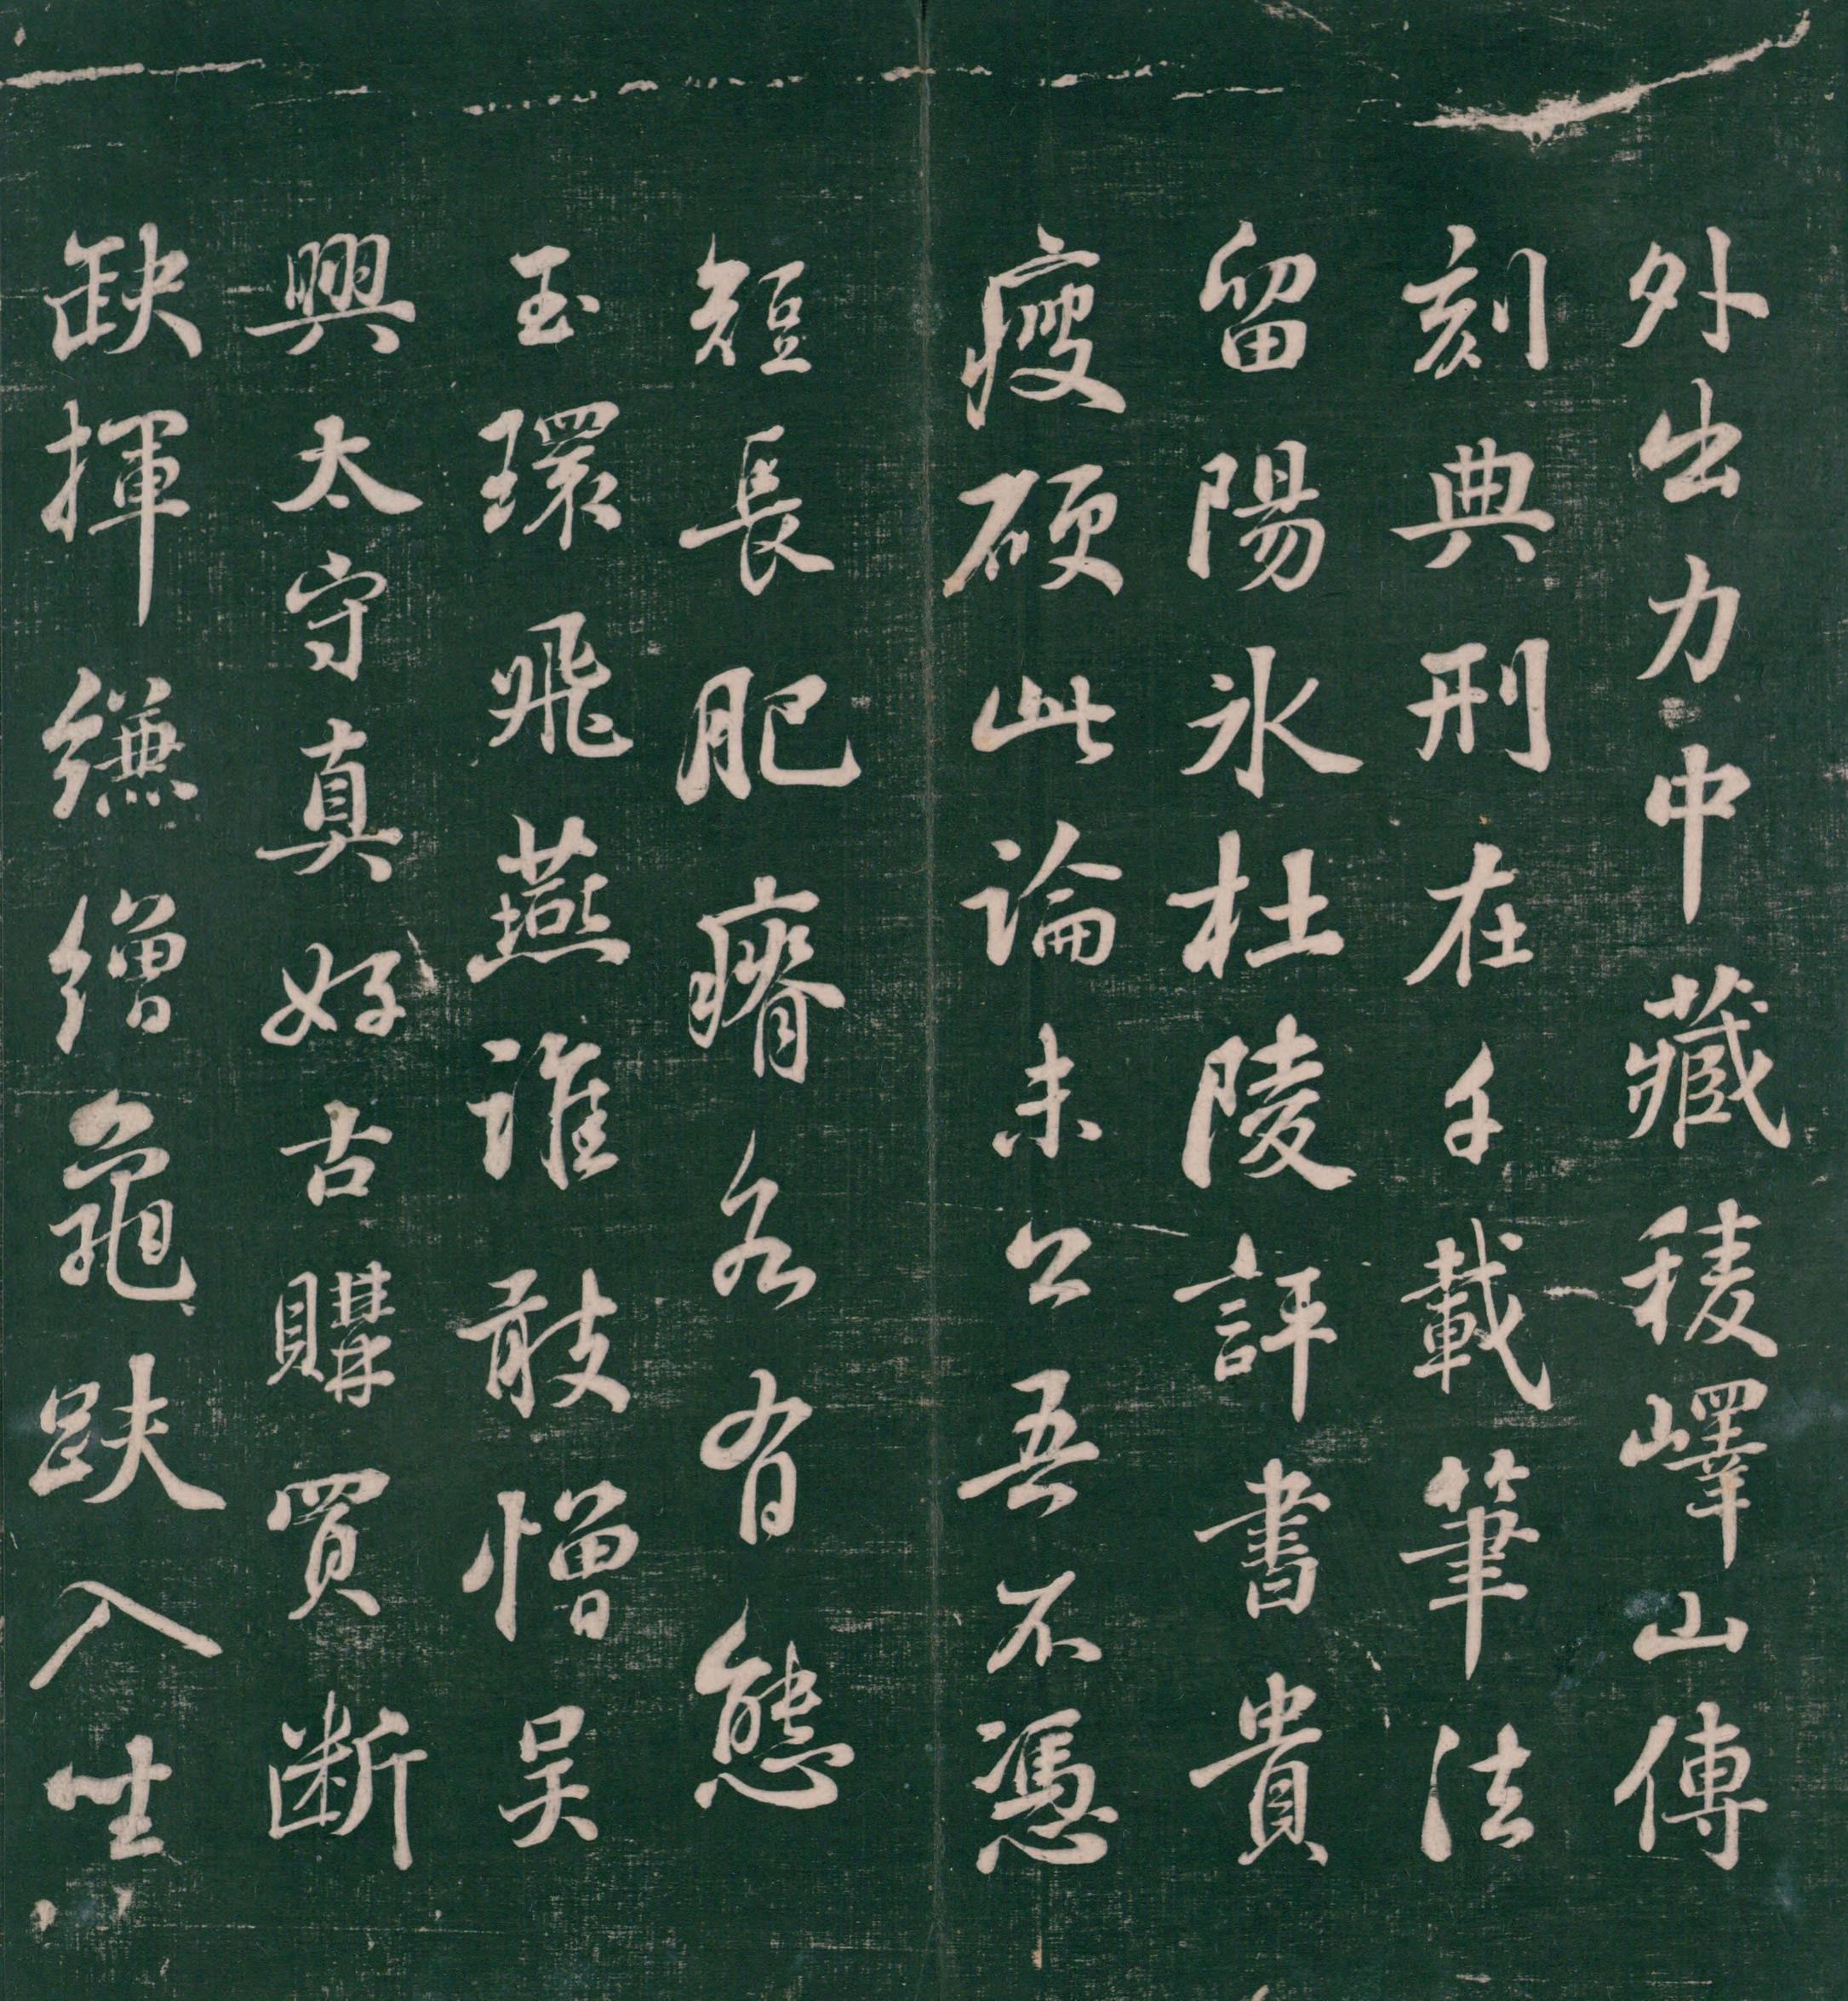 外出力中藏稜嶧山傳
刻典刑在千載筆法
留陽氷杜陵評書貴
瘦硬此論未公吾不憑
短長肥瘠各有態
玉環飛燕誰敢憎吴
興太守真好古購買断
缺揮縑繒龜趺入坐